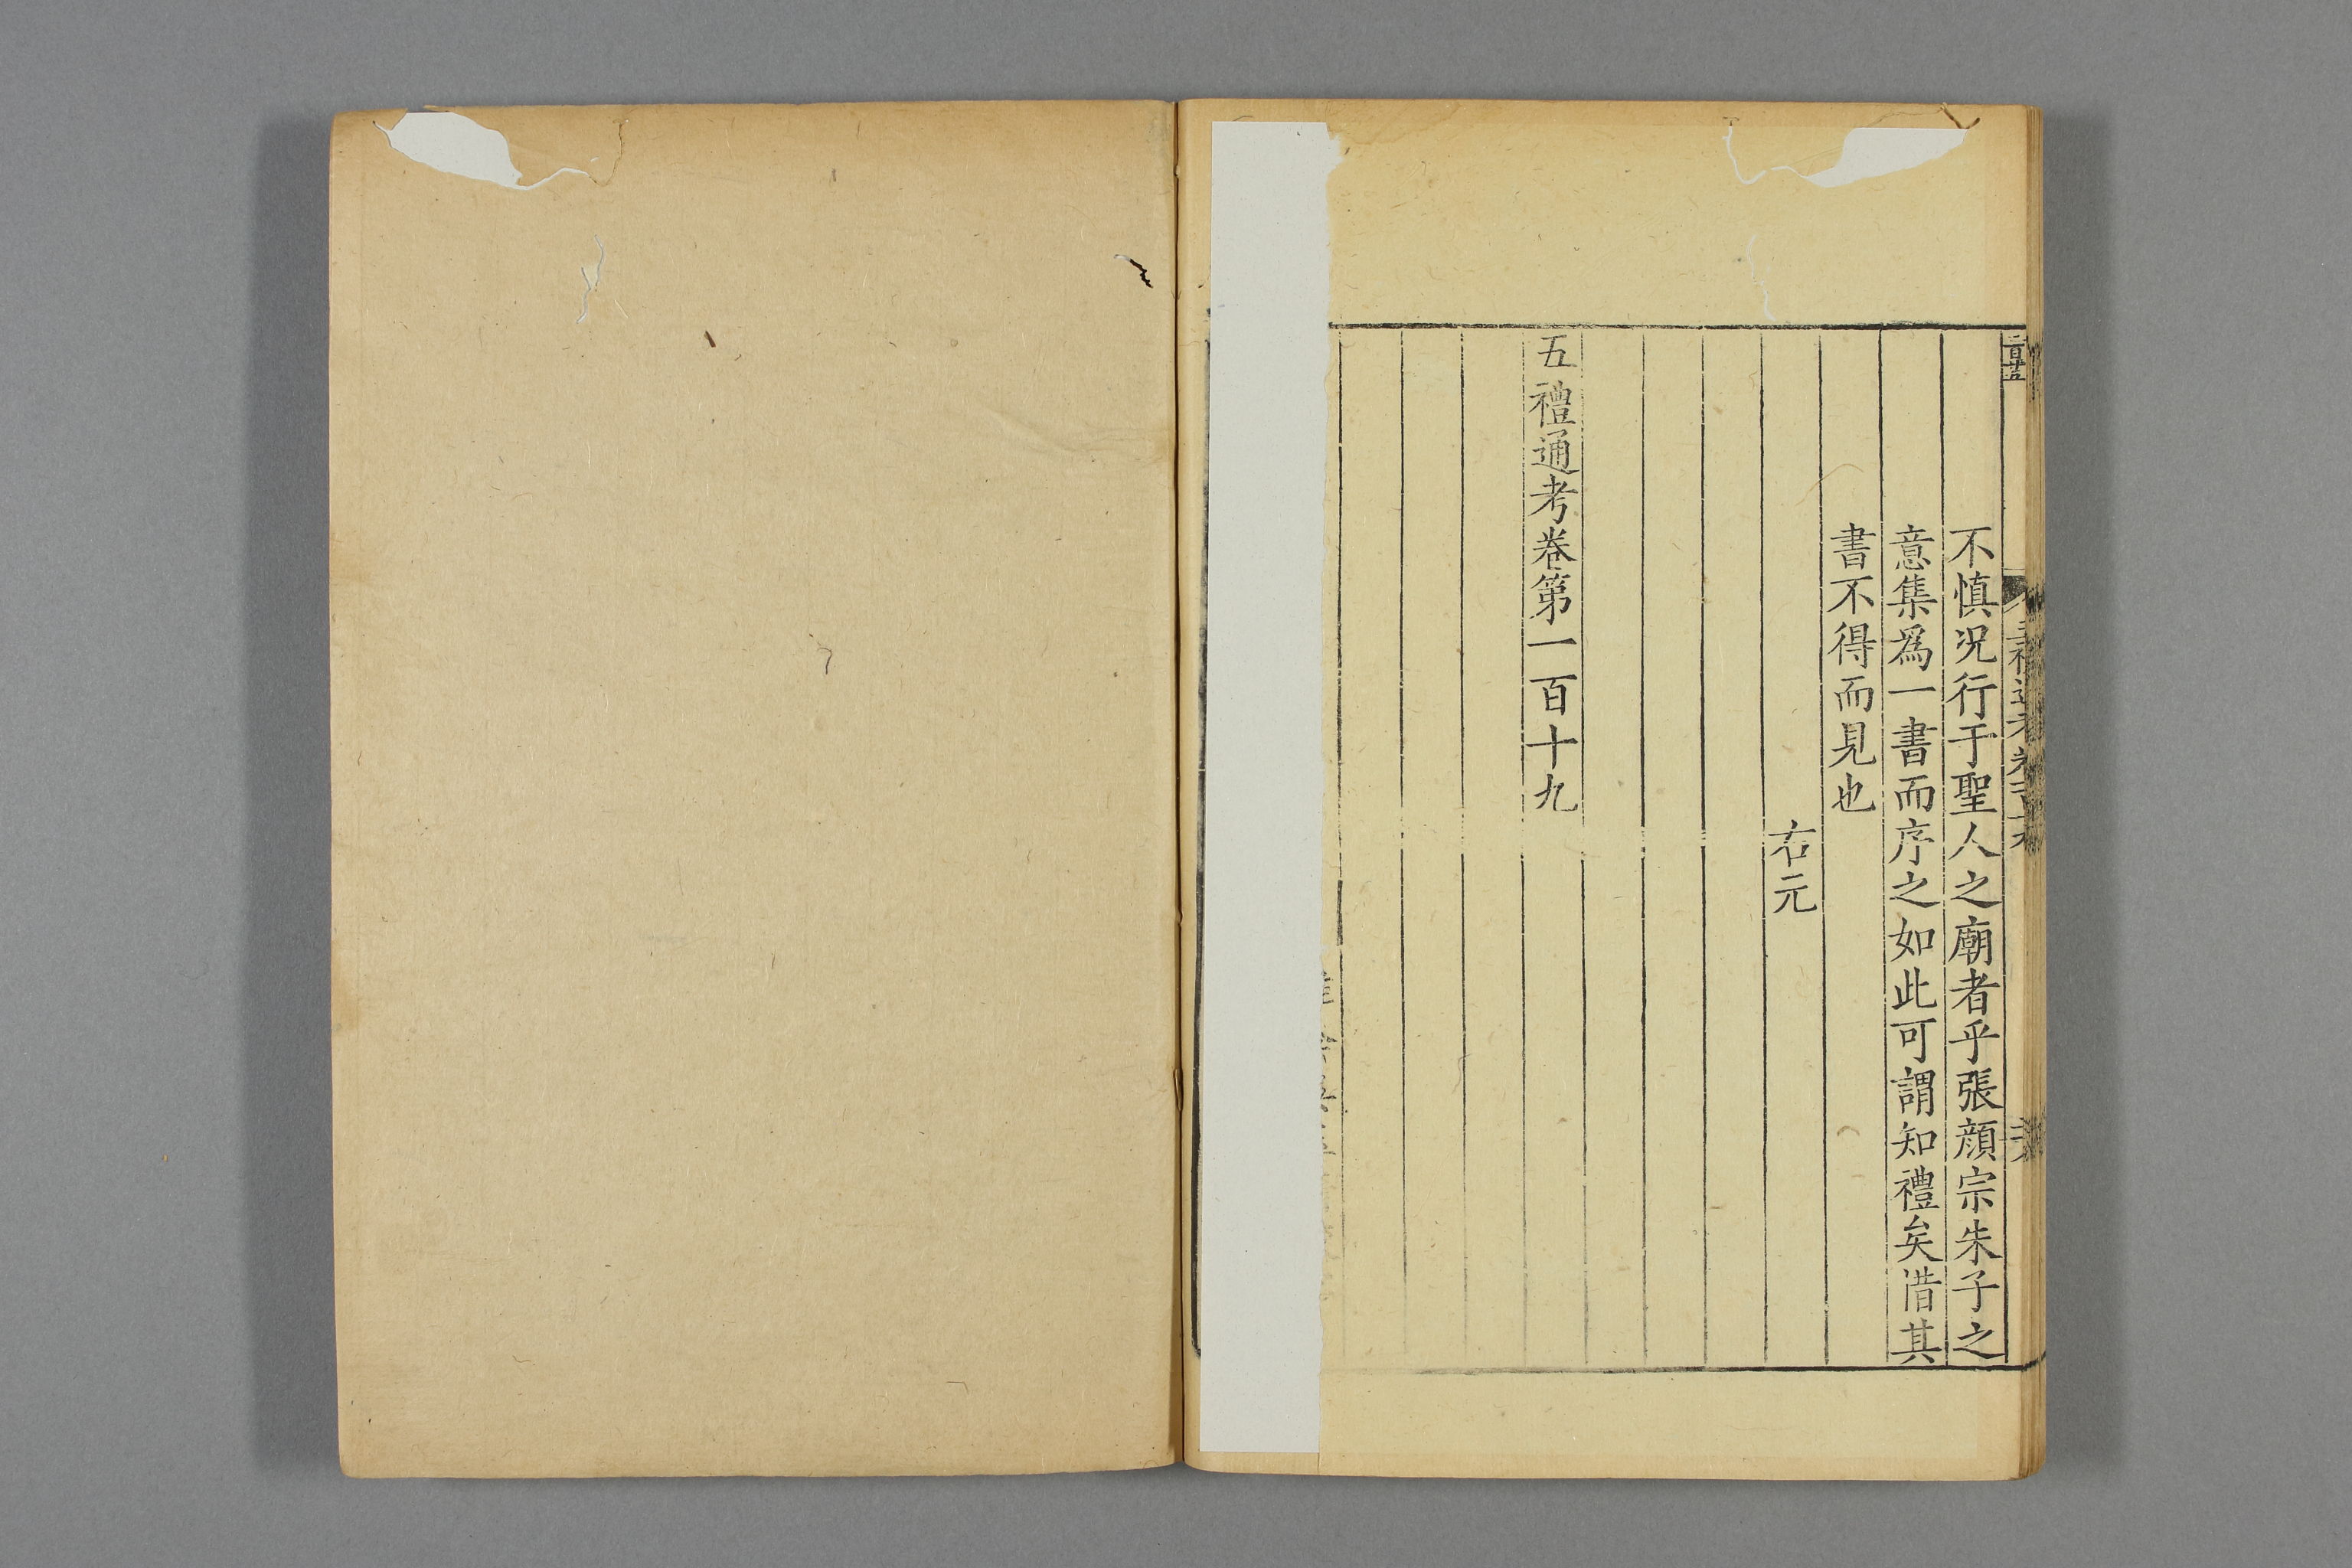 不慎况行于聖人之廟者乎張顔宗朱子之
意集爲一書而序之如此可謂知禮矣惜其
書不得而見也
右元
五禮通考卷第一百十九